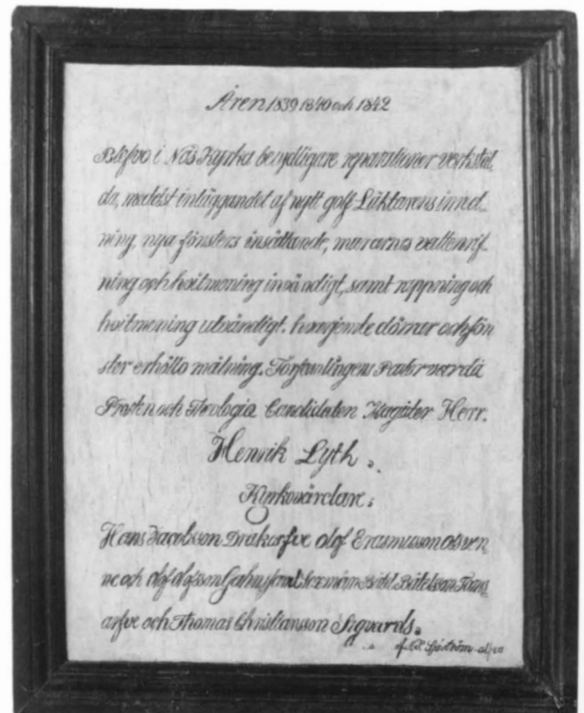 Åren 1839 1840 och 1842
Blefvo i Näs Kyrka betydligare reparationer verkstäl-
da, medelst inläggandet af nytt golf Läktarens inred-
ning, nya fönsters insättande, murarnes vattenrif-
ning och hvitmening invändigt, samt rappning och
hvitmening utvändigt. hvarjemte dörrar och fön
ster erhöllo målning. Församlingens Pastor var då
Prosten och Theologia Candidaten Magister Herr.
Henrik Lyth.
Kyrkovärdare:
Hans Jacobsson Drakarfve Olof Erasmusson
och Olof Olofsson
arfve och Thomas Christiansson Sigvards.
af